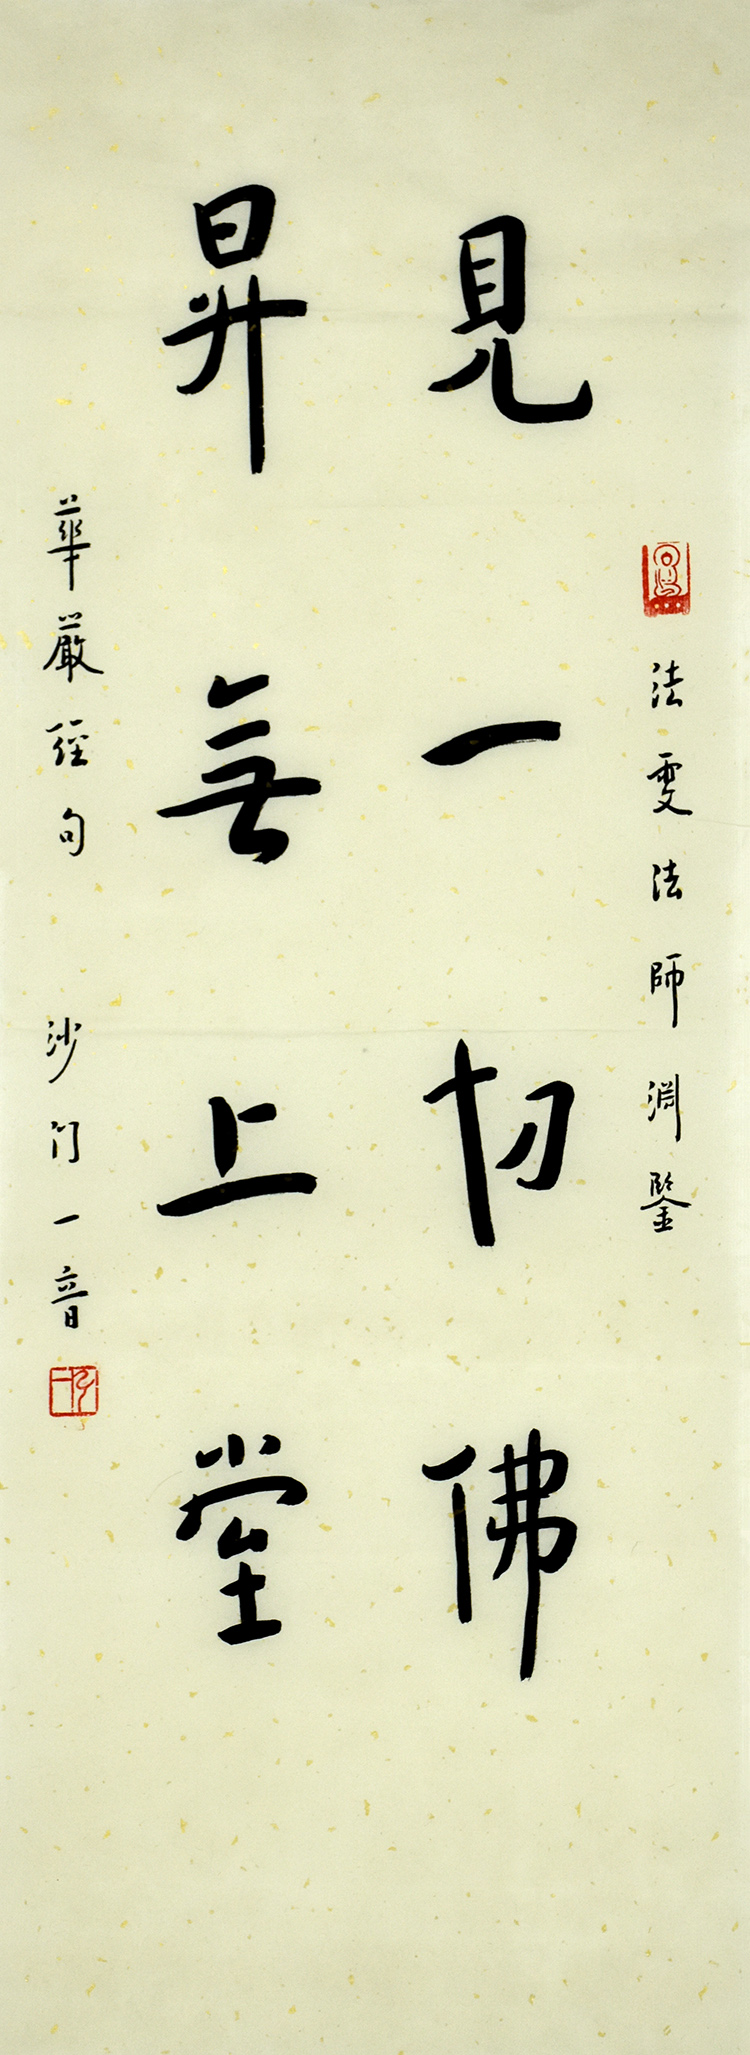 法雯法師淵鑒
見一切佛
昇無上堂
華嚴經句 沙門一音